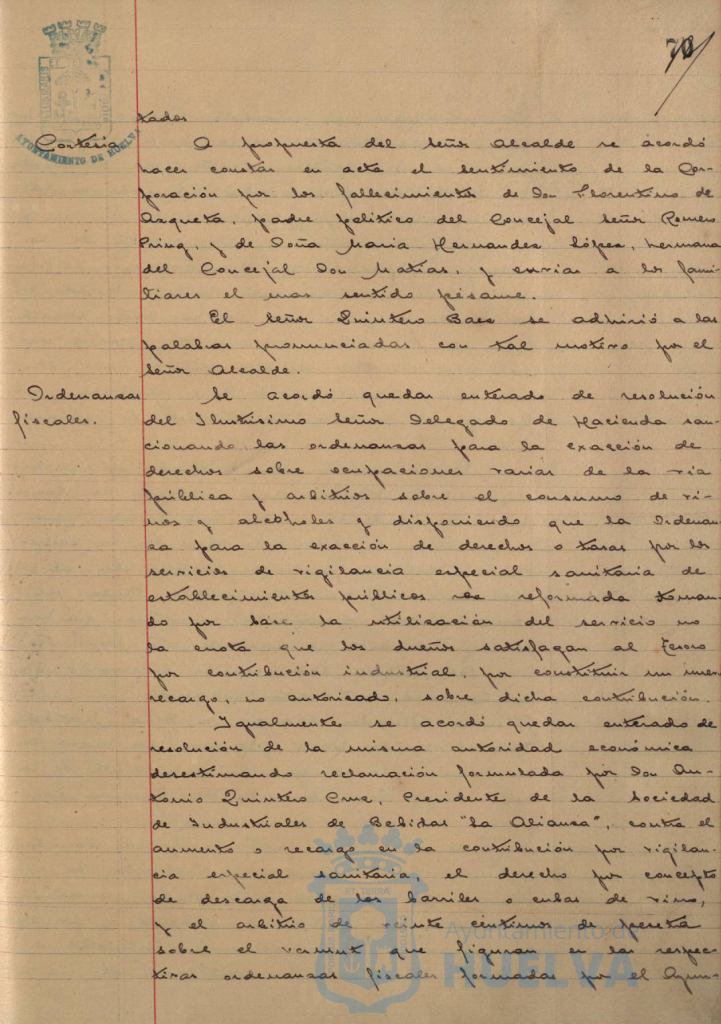 70
tados
Cortesía
A propuesta del Señor Alcalde se acordó
hacer constar en acta el sentimiento de la Cor-
poración por los fallecimientos de Don Florentino de
Azqueta, padre político del Concejal Señor Romero
y de Doña Maria Hernandez López, hermana
del Concejal Don Matias, y enviar a los fami-
liares el mas sentido pésame.
El Señor Quintero Baez se adhirió a las
palabras pronunciadas con tal motivo por el
Señor Alcalde.
Ordenanzas
fiscales.
Se acordó quedar enterado de resolución
del Ilustrísimo Señor Delegado de Hacienda san-
cionando las ordenanzas para la exacción de
derechos sobre ocupaciones varias de la via
pública y arbitrios sobre el consumo de vi-
nos y alcoholes y disponiendo que la Ordenan-
za para la exacción de derechos o tasas por los
servicios de vigilancia especial sanitaria de
establecimientos públicos sea reformada toman-
do por base la utilización del servicio no
la cuota que los dueños satisfagan al Tesoro
por contribución industrial, por constituir un nuevo
recargo, no autorizado, sobre dicha contribución.
Igualmente se acordó quedar enterado de
resolución de la misma autoridad económica
desestimando reclamación formulada por Don An-
tonio Quintero Cruz, Presidente de la Sociedad
de Industriales de Bebidas "La Alianza", contra el
aumento o recargo en la contribución por vigilan-
cia especial sanitaria, el derecho por concepto
de descarga de los barriles o cubas de vino,
y el arbitrio de veinte céntimos de peseta
sobre el vermut que figuran en las respec-
tivas ordenanzas fiscales formadas por el Ayun-
AYUNTAMIENTO DE HUELVA
Ayuntamiento de
HUELVA